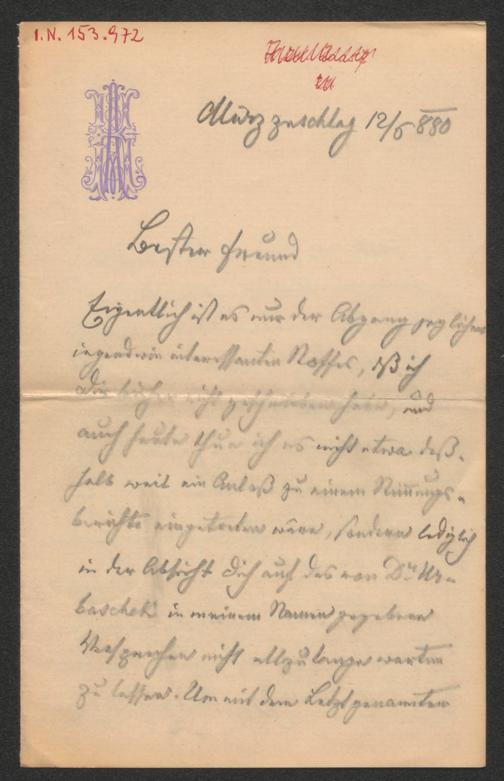 I.N. 153.972
Mürzzuschlag 12/5 880
Bester Freund
Eigentlich ist es nur der Abgang jeglichen
irgendwie interessanten Stoffes, daß ich
Dir früher nicht geschrieben habe, und
auch heute thue ich es nicht etwa deß-
halb weil ein Anlaß zu einem Stimmungs-
berichte eingetreten wäre, sondern lediglich
in der Absicht Dich auf das von Dr Ur-
baschek in meinem Namen gegebene
Versprechen nicht allzulange warten
zu lassen. Um mit dem Letztgenannten